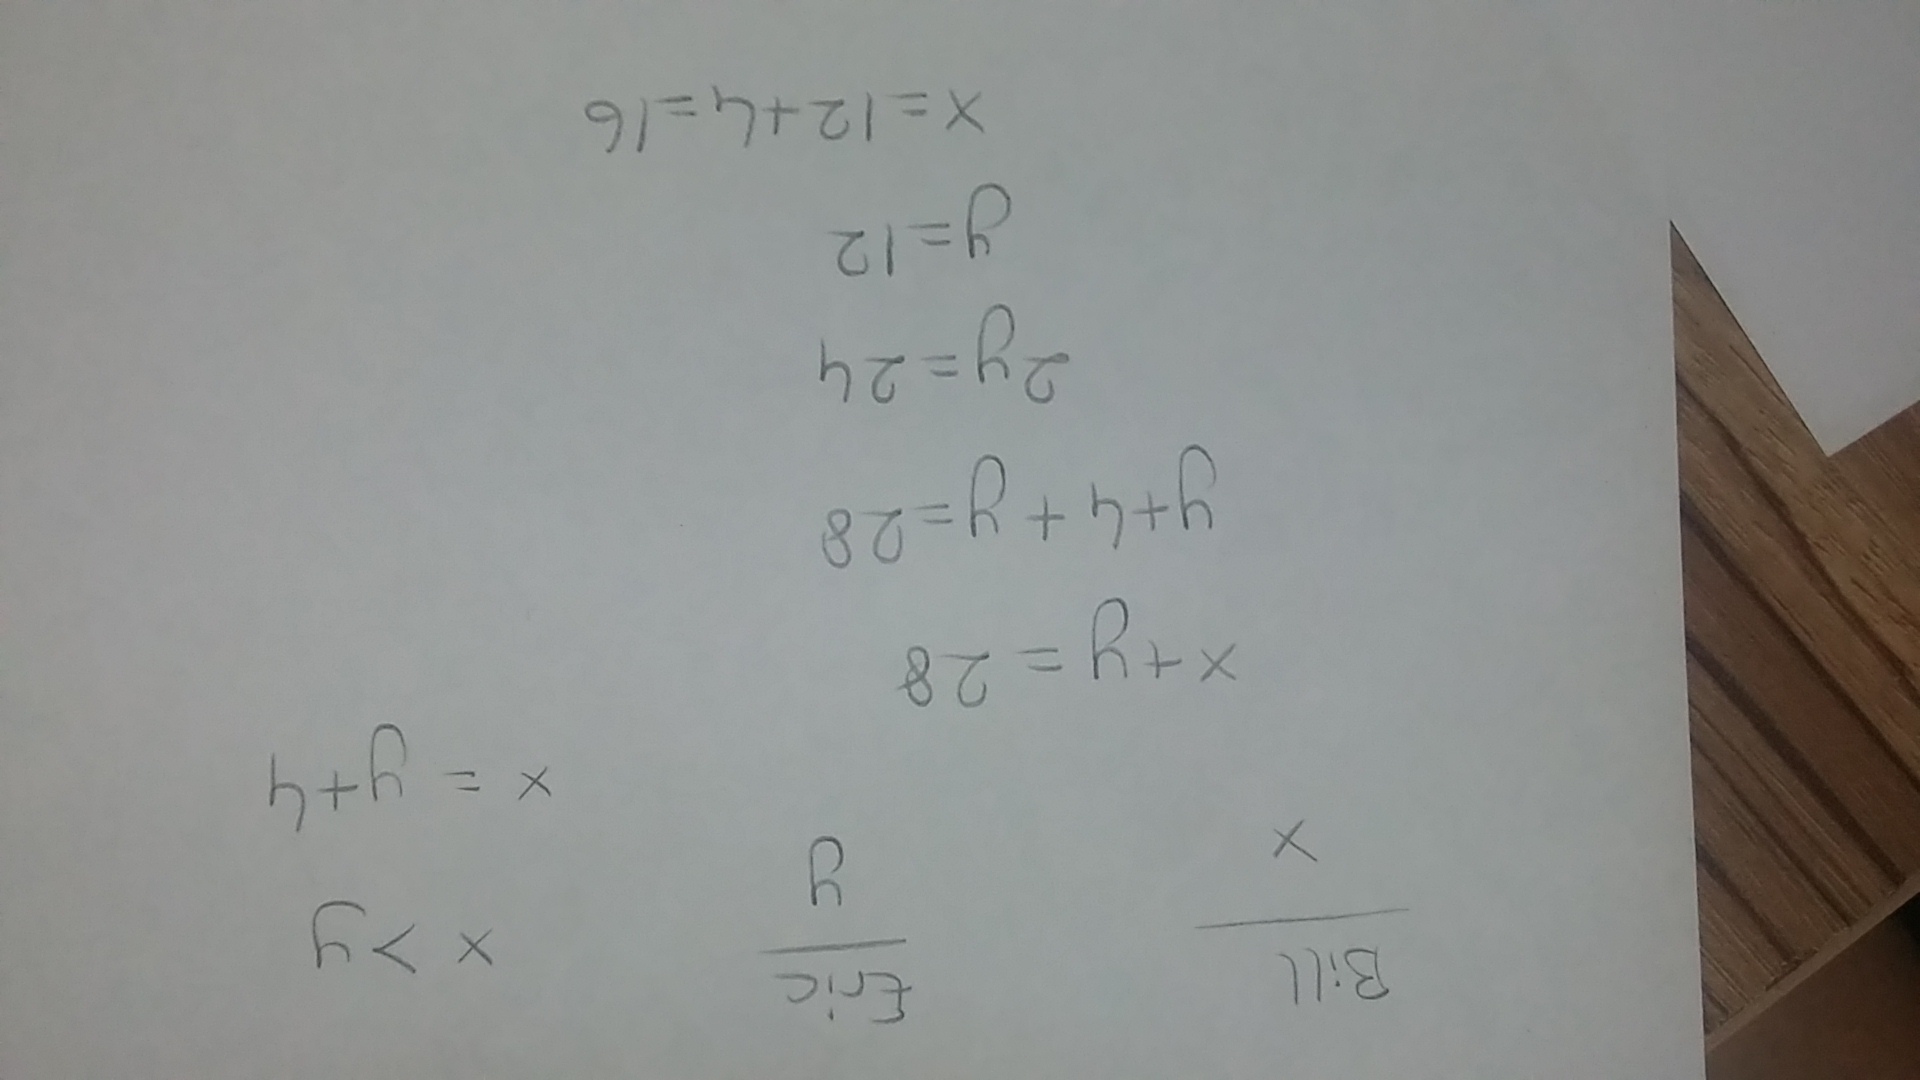 Bill Eric x > y
x y x = y+4
x+y = 28
y+4 + y = 28
2y = 24
y = 12
x = 12+4 = 16